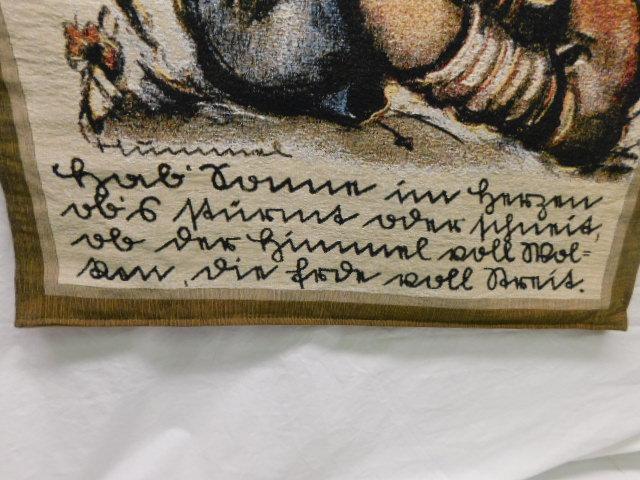 Hummel
Hab' Sonne im Herzen
ob's stürmt oder schneit,
ob der Himmel voll Wol=
ken, die Erde voll Streit.